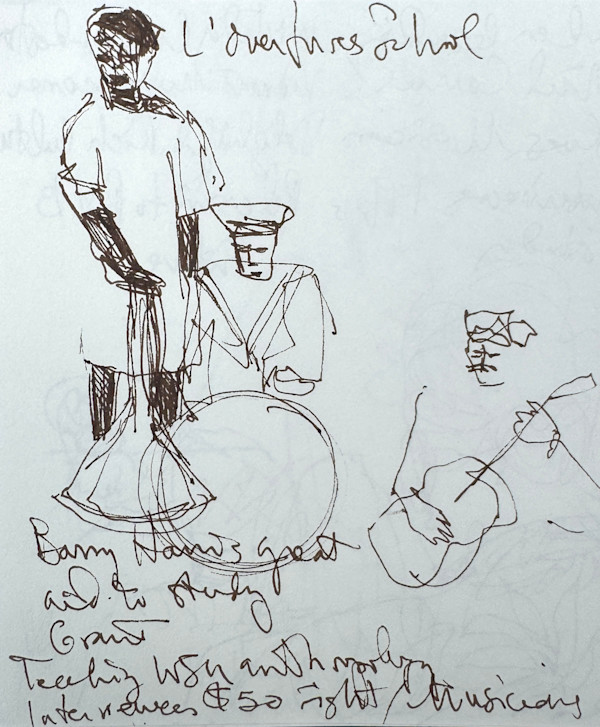 L'overtures School
Barry Harris great
aid to study
Grant
Teaching WSU anthropology
Interviewees $50 Eight / Musicians